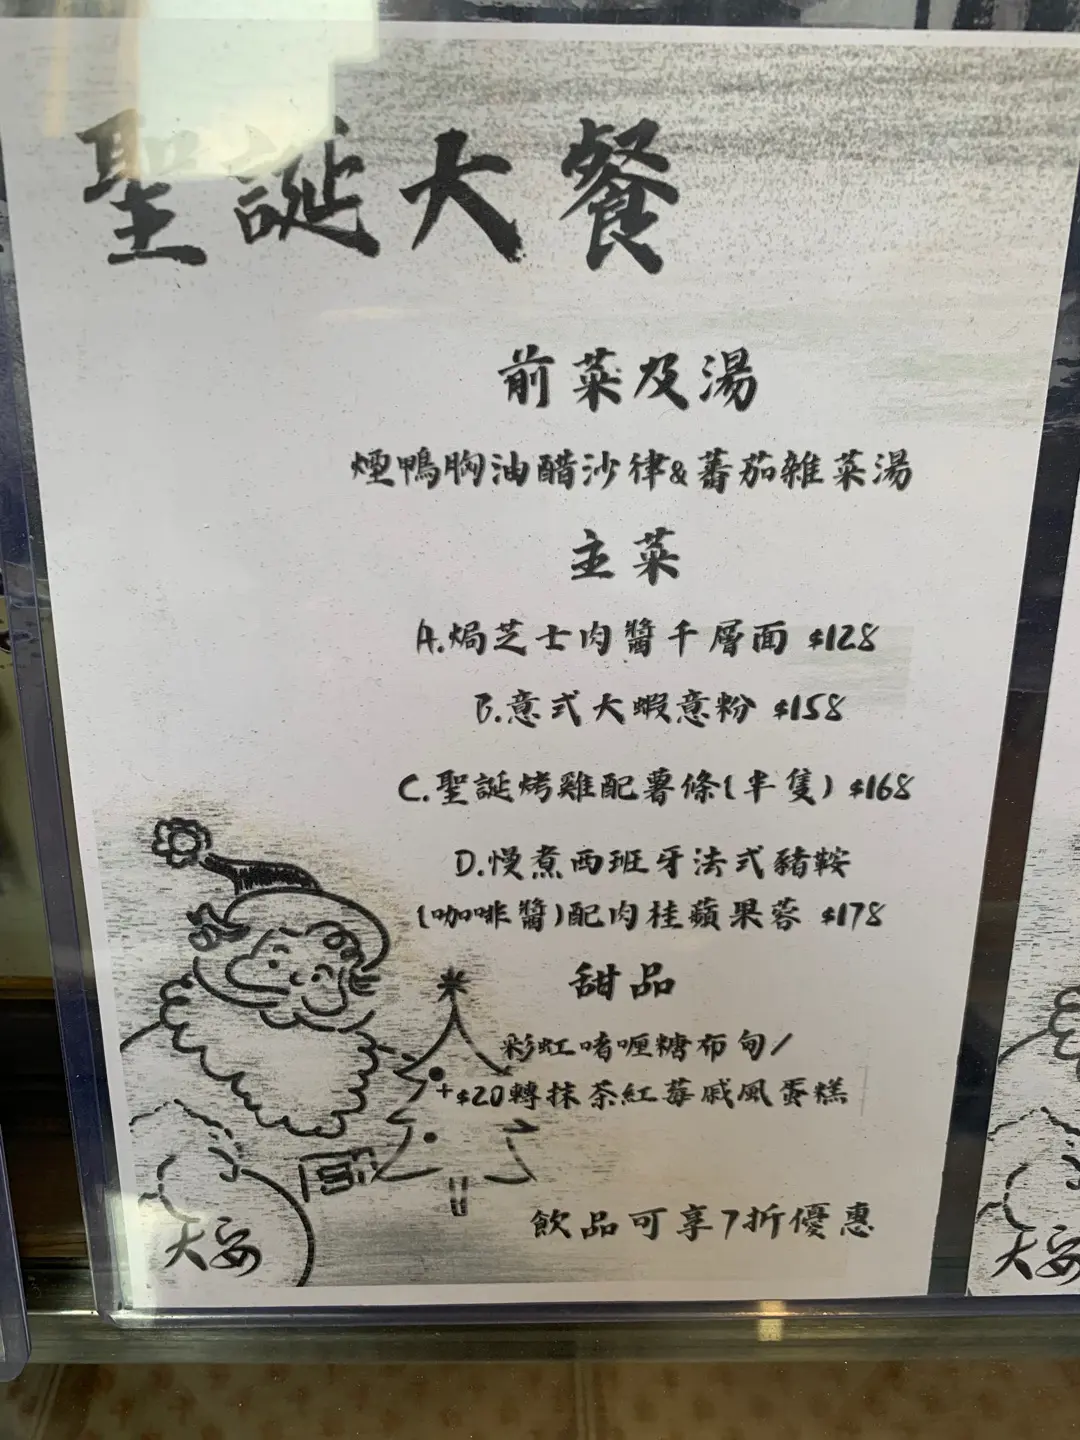 聖誕大餐
前菜及湯
煙鴨胸油醋沙律&蕃茄雜菜湯
主菜
A.焗芝士肉醬千層面 $128
B.意式大蝦意粉 $158
C.聖誕烤雞配薯條(半隻) $168
D.慢煮西班牙法式豬鞍
(咖啡醬)配肉桂蘋果蓉 $178
甜品
彩虹啫喱糖布甸/
+$20轉抹茶紅莓戚風蛋糕
飲品可享7折優惠
大安
大安